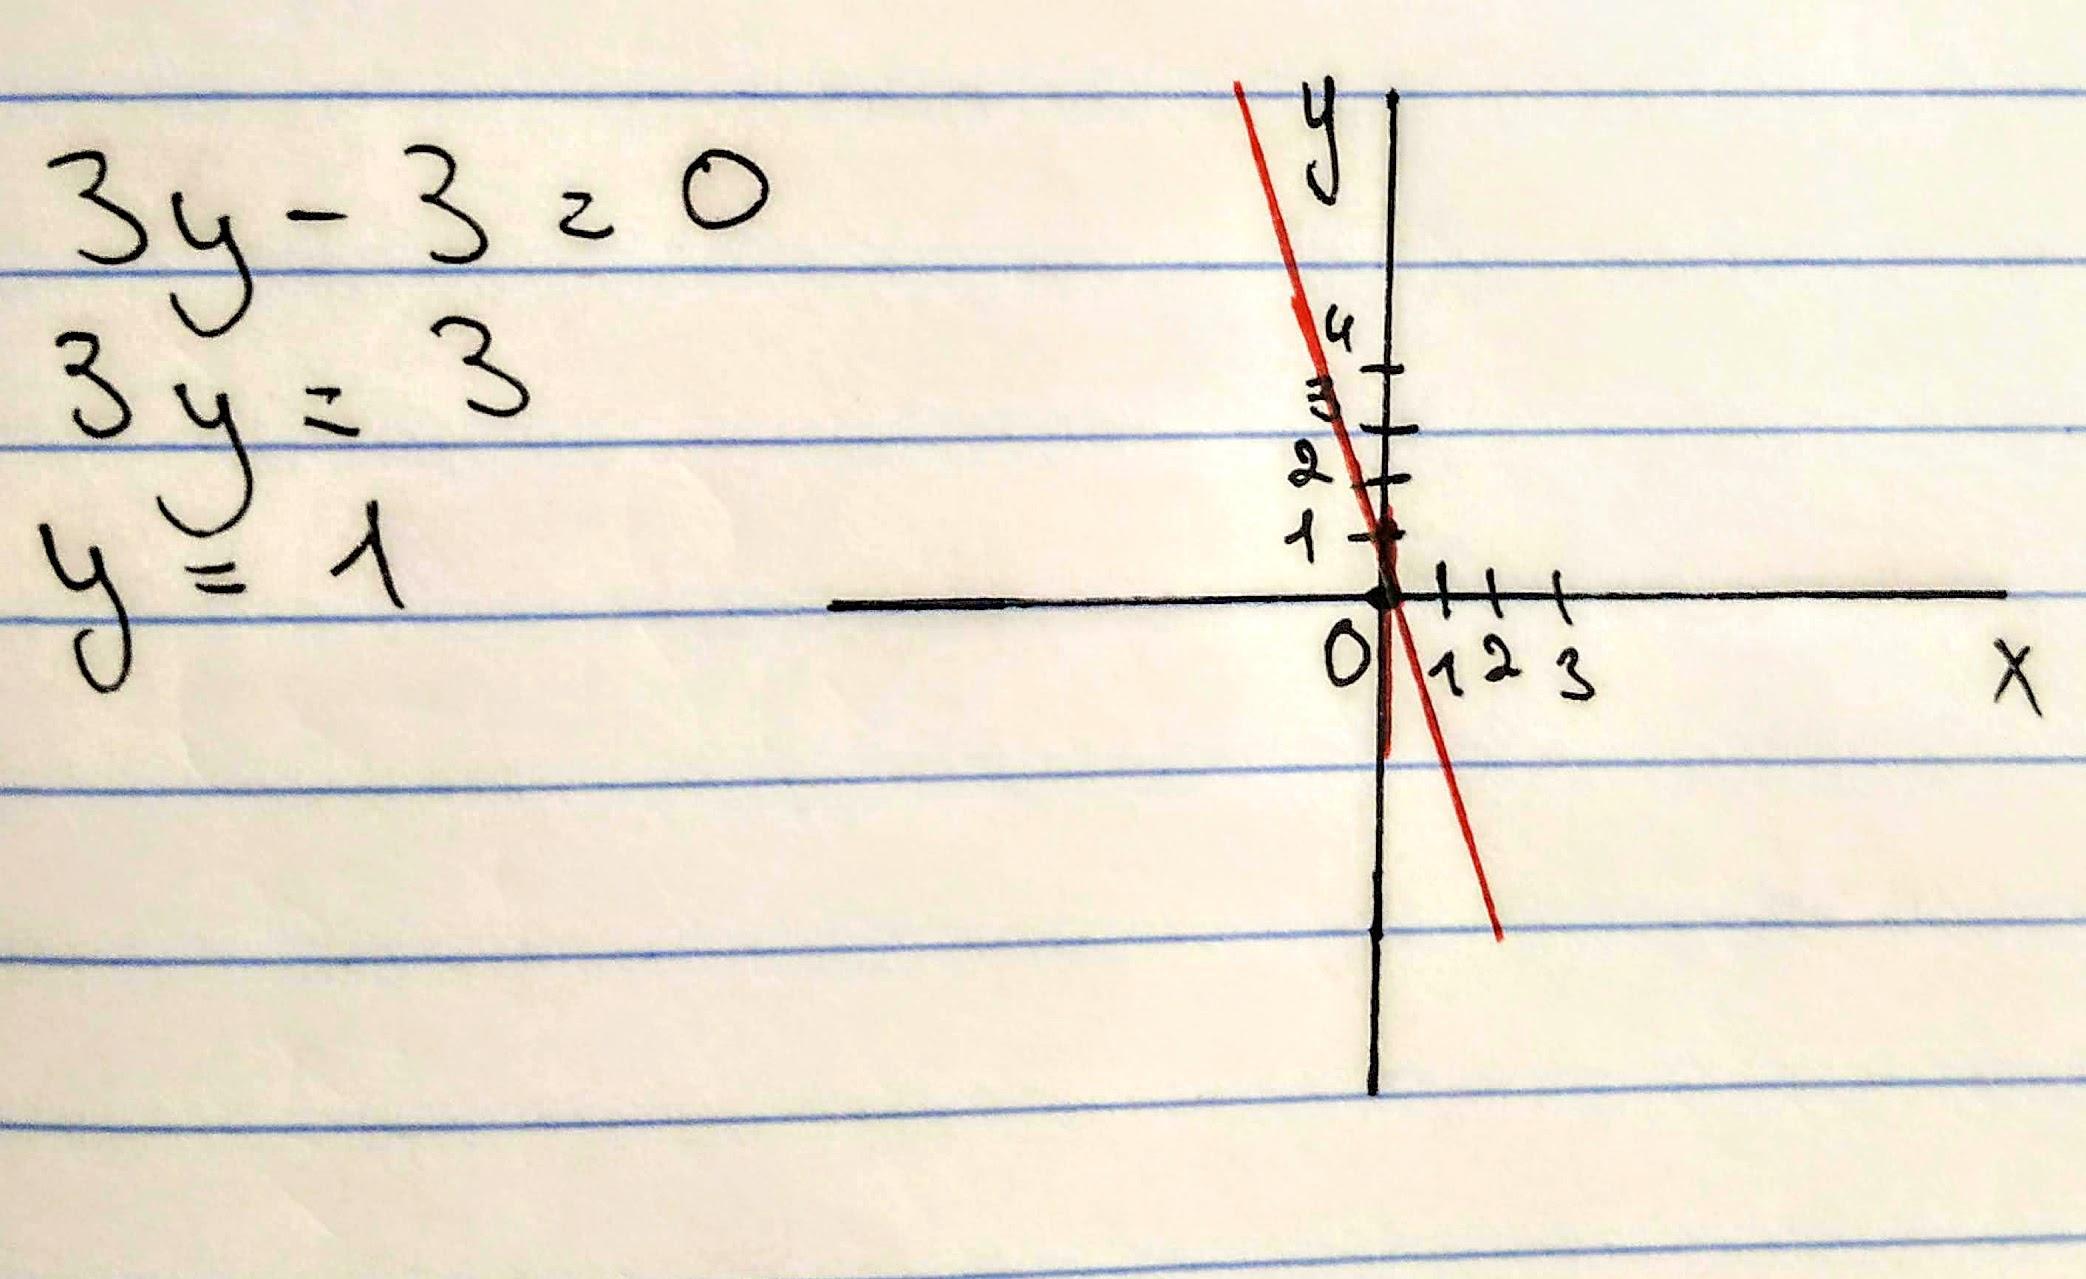 3y - 3 = 0
3y = 3
y = 1
y
4
3
2
1
0 1 2 3
x